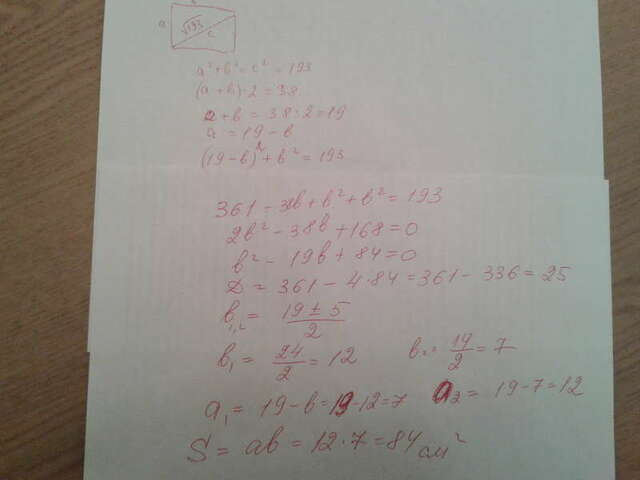 в
a √193 c
a² + в² = c² = 193
(a + в)·2 = 38
a + в = 38:2 = 19
a = 19 - в
(19 - в)² + в² = 193
361 - 38в + в² + в² = 193
2в² - 38в + 168 = 0
в² - 19в + 84 = 0
D = 361 - 4·84 = 361 - 336 = 25
в₁,₂ = (19 ± 5)/2
в₁ = 24/2 = 12 в₂ = 14/2 = 7
a₁ = 19 - в = 19 - 12 = 7 a₂ = 19 - 7 = 12
S = aв = 12·7 = 84 см²